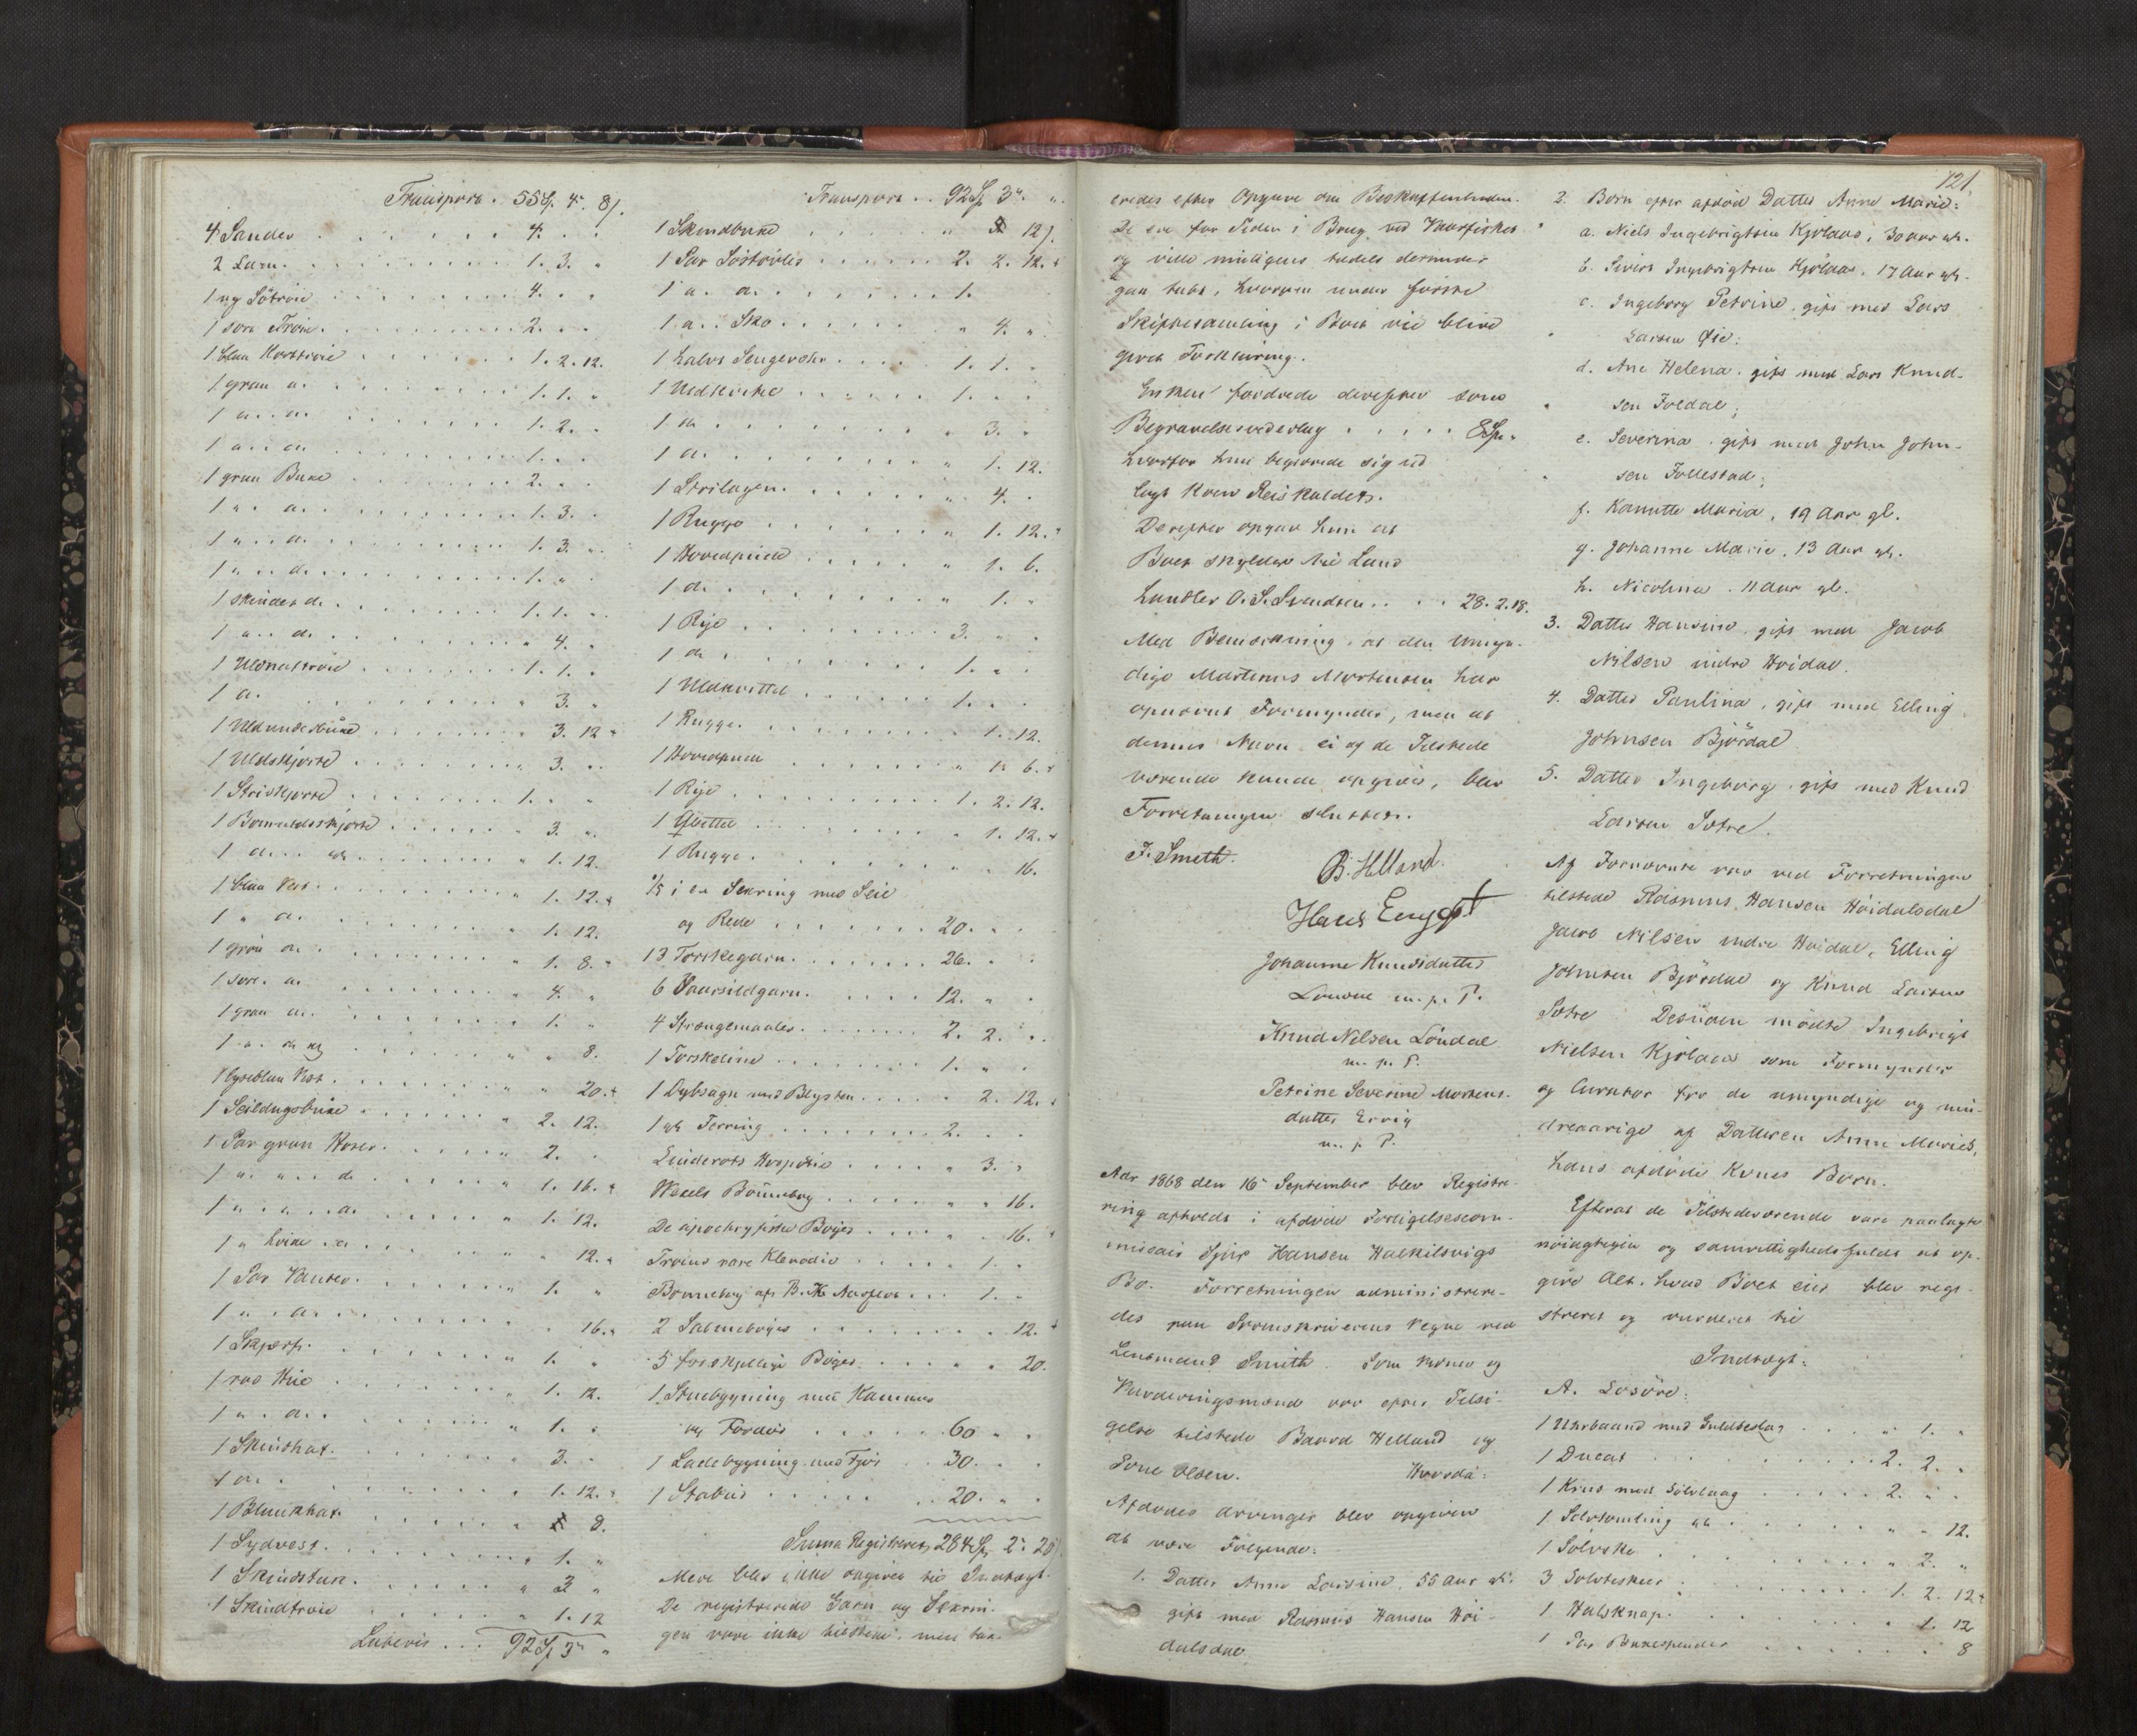 Transport . 55 Sp. 4 " 8/.
4 Sauder . . . 4. . .
2 Lam. . . . 1. 3. "
1 ny Söetröie . . . 4. . .
1 sort Tröie. . . . 2. . .
1 blaa . . . 1. 2. 12.
1 graa d. . . . 1. 1. "
1 d: d: . . . 1. 2. .
1 d: d: . . . 1. . .
1 graa Buxe . . . 2. . .
1 " d. . . . 1. 3. .
1 " d. . . . 1. 3. "
1 " d. . . . 1. " .
1 Skinds d. . . . 1. 1. .
1 d: d: . . . " 4. "
1 Uldnattröie . . . 1. 1. .
1 d. . . . " 3. "
1 Uldunderbuxe . . . " 3. 12 "
1 Uldskjorte . . . " 3. "
1 Striskjorte . . . 1. " "
1 Bomuldsskjorte . . . " 3. ".
1 d. . . . " 1. 12.
1 blaa Vest. . . . " 1. 12. "
1 " d. . . . " 1. 12.
1 grön d. . . . " 1. 8. "
1 sort d. . . . " 4. "
1 graa d. . . . " 1. "
1 " d. . . . " " 8.
1 lyseblaa Vest. . . . " " 20. "
1 Seildugsbuxe . . . " 2. 12.
1 Par graa Hoser. . . . " 2. .
1 " " " d. . . . " 1. 16. "
1 " " " d. . . . " 1. 12.
1 " hvide d. . . . " " 12. "
1 Par Vanter. . . . " 1. "
1 " d. . . . " " 16. "
1 Skjerf. . . . " 1. "
1 rød Hue . . . " 1. 12.
1 " d. . . . " 1. "
1 Skindhat. . . . " 3. .
1 d. . . . " 1. 12. "
1 Blankhat. . . . " " 8.
1 Sydvest. . . . " 1. "
1 Skindstak. . . . " 2 "
1 Skindtröie . . . " 1. 12
Lateris . . . 92 Sp 3 " "
Transport . . 92 Sp 3 " ".
1 Skindbuxe . . . " 12/.
1 Par Söstövler . . . 2. 2. 12. "
1 d. d. . . . 1. .
1 d. . Sko . . . " 4. ".
1 halvt Sengeverk . . . 1. 1. .
1 . . . 1. . .
1 d. . . . " 3. "
1 d. . . . " 1. 12.
1 Strilagen. . . . " 4. .
1 Rugge . . . " 1. 12. "
1 Hovedpude . . . " 1. 6.
1 d. . . . " 1. "
1 Rye . . . 3. " .
1 d. . . . 1. " .
1 Uldkvittel . . . 1. . .
1 Rugge. . . . " 1. 12.
1 Hovedpude . . . " 1. 6. "
1 Rye . . . 1. 2. 12.
1 Qvittel . . . " 1. 12. "
1 Rugge. . . . " " 16.
1/5 i en Sexring med Seil
og Rede . . . 20. " .
13 Torskegarn. . . . 26. " .
6 Vaarsildgarn. . . . 12. " .
4 Strængemaaler. . . . 2. 2. ".
1 Torskeline . . . 1. " .
1 Dybsagn med Blysten . . . " 2. 12. "
1 gl. Ferring . . . 2. . .
Linderots Huspostil . . . " 3. "
Wexels Bönnebog . . . " " 16.
De apochryfiske Böger . . . " " 16. "
Troens rare Klenodie . . . " 1. "
Bönnebog af B. K. . . . 1. "
2 Salmebøger . . . " " 12. "
5 forskjellige Böger . . . " " 20.
1 Stuebygning med Kammers
og Fordör . . . 60 " .
1 Ladebygning med Fjös . . 30. " .
1 Stabur . . . 20. " .
Suma Registreret 284 Sp 2 " 20/.
Mere blev ikke angiven til Indtægt.
De registrerede Garn og Sexrin-
gen vare ikke tilstede, men tax-
121.
eredes efter Opgave om Beskaffenheden.
De ere for Tiden i Brug ved Vaarfisket
og ville muligens tildels derunder
gaa tabt, hvorom under förste
Skiftesamling i Boet vil blive
given Forklaring.
Enken fordrede derefter som
Begravelsesvederlag . . . . . 8 Sp. "
hvorfor hun begjerede sig ud
lagt Koen Reiskalder.
Derefter opgav hun at
Boet skylder til Land
handler O. S. Svendsen . . . . 28. 2. 18.
Med Bemærkning, at den Umyn-
dige Martinus Mortensen har
opnævnt Formynder, men at
dennes Navn ei af de Tilstede
værende kunde opgives, blev
Forretningen sluttet.
F. Smith. B. Helland.
Hans Engeset
Johanne Knudsdatter
m. p. P.
Knud Nilsen Löndal
m. p. P.
Petrine Severine Mortens-
datter Ervig
m. p P.
Aar 1868 den 16 September blev Registre-
ring afholdt i afdøde Forligelsescom-
missair Sjur Hansen
Bo. Forretningen administrere-
des paa Sorenskriverens Vegne ved
Lensmand Smith. Som Vidner og
Vurderingsmænd var efter Tilsi-
gelse tilstede Baard Helland og
Sone Olsen. Hvorda:
Afdødes Arvinger blev angiven
at være Følgende:
1. Datter Anne Larsine, 55 Aar gl:
gift med Rasmus Hansen Höi-
dalsdal
2. Børn efter afdød Datter Anne Marie:
a. Niels Ingebrigtsen Kjölaas, 30 aar gl.
b. Sivert Ingebrigtsen Kjölaas, 17 Aar gl.
c. Ingeborg Petrine, gift med Lars
Larsen Øie:
d. Ane Helena, gift med Lars Knud-
sen Foldal;
e. Severina, gift med John John-
sen Follestad;
f. Kanutte Maria, 19 Aar gl.
g. Johanne Marie, 13 Aar gl.
h. Nicoline, 11 Aar gl.
3. Datter Hansine, gift med Jacob
Nilsen indre Höidal.
4. Datter Paulina, gift med Elling
Johnsen Björdal
5. Datter Ingeborg, gift med Knud
Larsen Sætre.
Af Fornævnte var ved Forretningen
tilstede Rasmus Hansen Höidalsdal
Jacob Nilsen indre Höidal, Elling
Johnsen Björdal og Knud Larsen
Sætre. Desuden mödte Ingebrigt
Nielsen Kjölaas som Formynder
og Curator for de umyndige og min-
dreaarige af Datteren Anne Maries,
hans afdöde Kones Børn.
Efterat de Tilstedeværende vare paalagte
nöiagtigen og samvittighedsfuldt at op-
give Alt, hvad Boet eier blev regi-
streret og vurderet til
Indtægt:
A. Lösöre:
1 Uhrbaand med Guldbeslag . . . " 1. "
1 Ducat . . . 2. 2. "
1 Krus med Sölvlaag . . . 2. " .
1 gl. . . . " " 12.
1 Sölvske . . . " 2. "
3 Sölvteskeer . . . 1. 2. 12 "
1 Halsknap. . . . 1. 12
1 Par Buxespender . . . 8